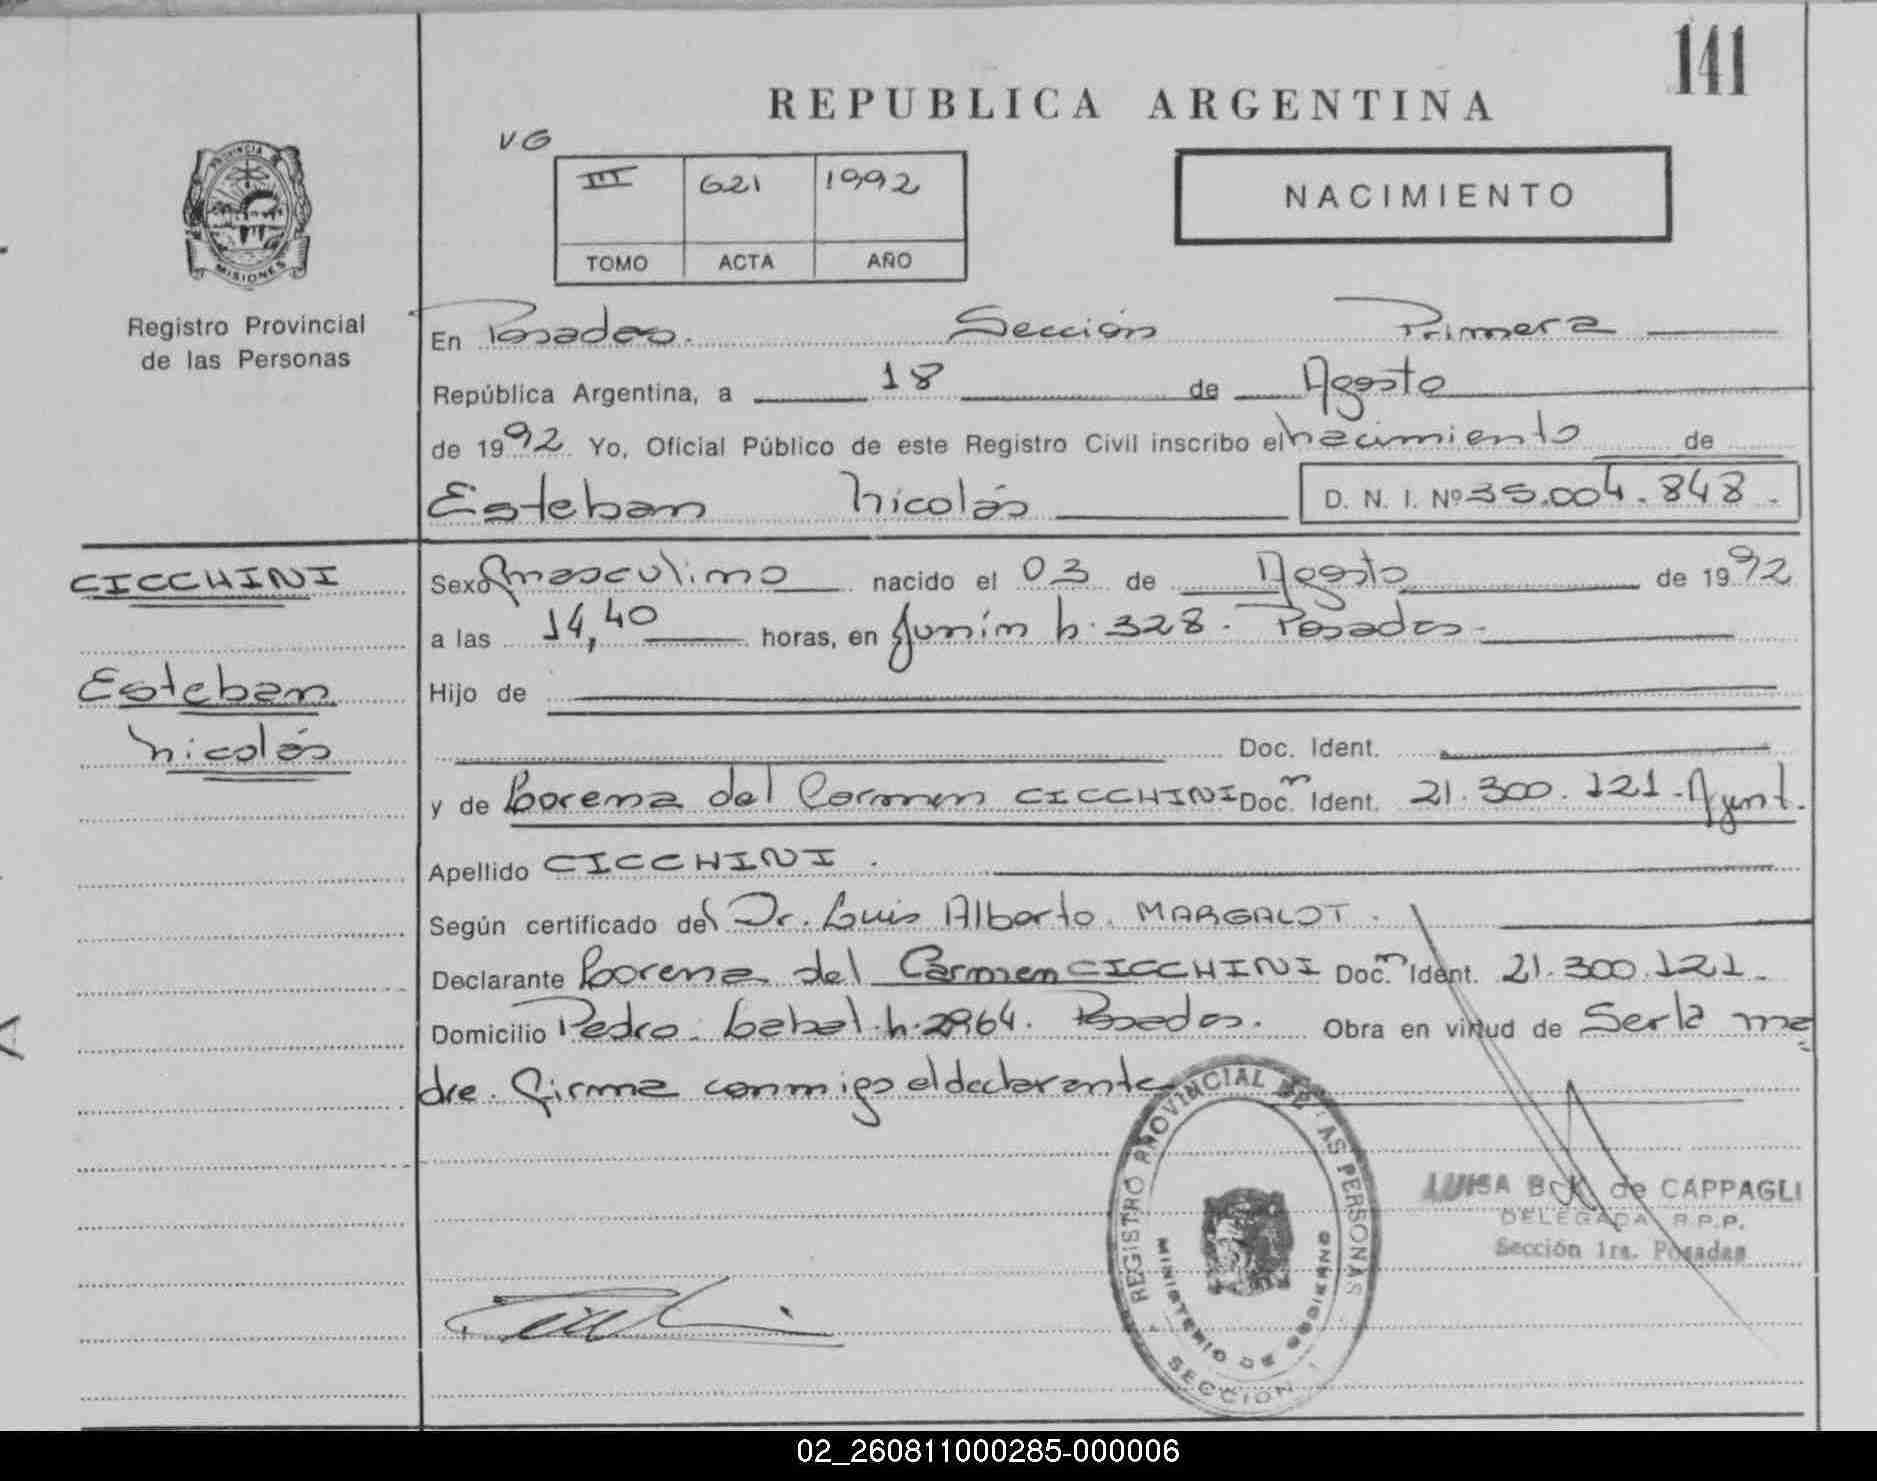 141
REPUBLICA ARGENTINA
VG
III 621 1992
TOMO ACTA AÑO
NACIMIENTO
PROVINCIA DE
MISIONES
Registro Provincial
de las Personas
En Posadas. Sección Primera
República Argentina, a 18 de Agosto
de 1992 Yo, Oficial Público de este Registro Civil inscribo el nacimiento de
Esteban Nicolás D. N. I. Nº 35.004.848.
CICCHINI
Esteban
Nicolás
Sexo masculino nacido el 03 de Agosto de 1992
a las 14,40 horas, en Junín h. 328. Posadas.
Hijo de
Doc. Ident.
y de Lorena del Carmen CICCHINI Doc. Ident. 21.300.121. Arjent.
Apellido CICCHINI.
Según certificado del Dr. Luis Alberto MARGALOT.
Declarante Lorena del Carmen CICCHINI Doc. Ident. 21.300.121.
Domicilio Pedro h. 2964. Posadas. Obra en virtud de Ser la ma
dre. Firma conmigo el declarante
REGISTRO PROVINCIAL DE LAS PERSONAS
MINISTERIO DE GOBIERNO
SECCION
LUISA B. de CAPPAGLI
DELEGADA R.P.P.
Sección 1ra. Posadas
02_260811000285-000006